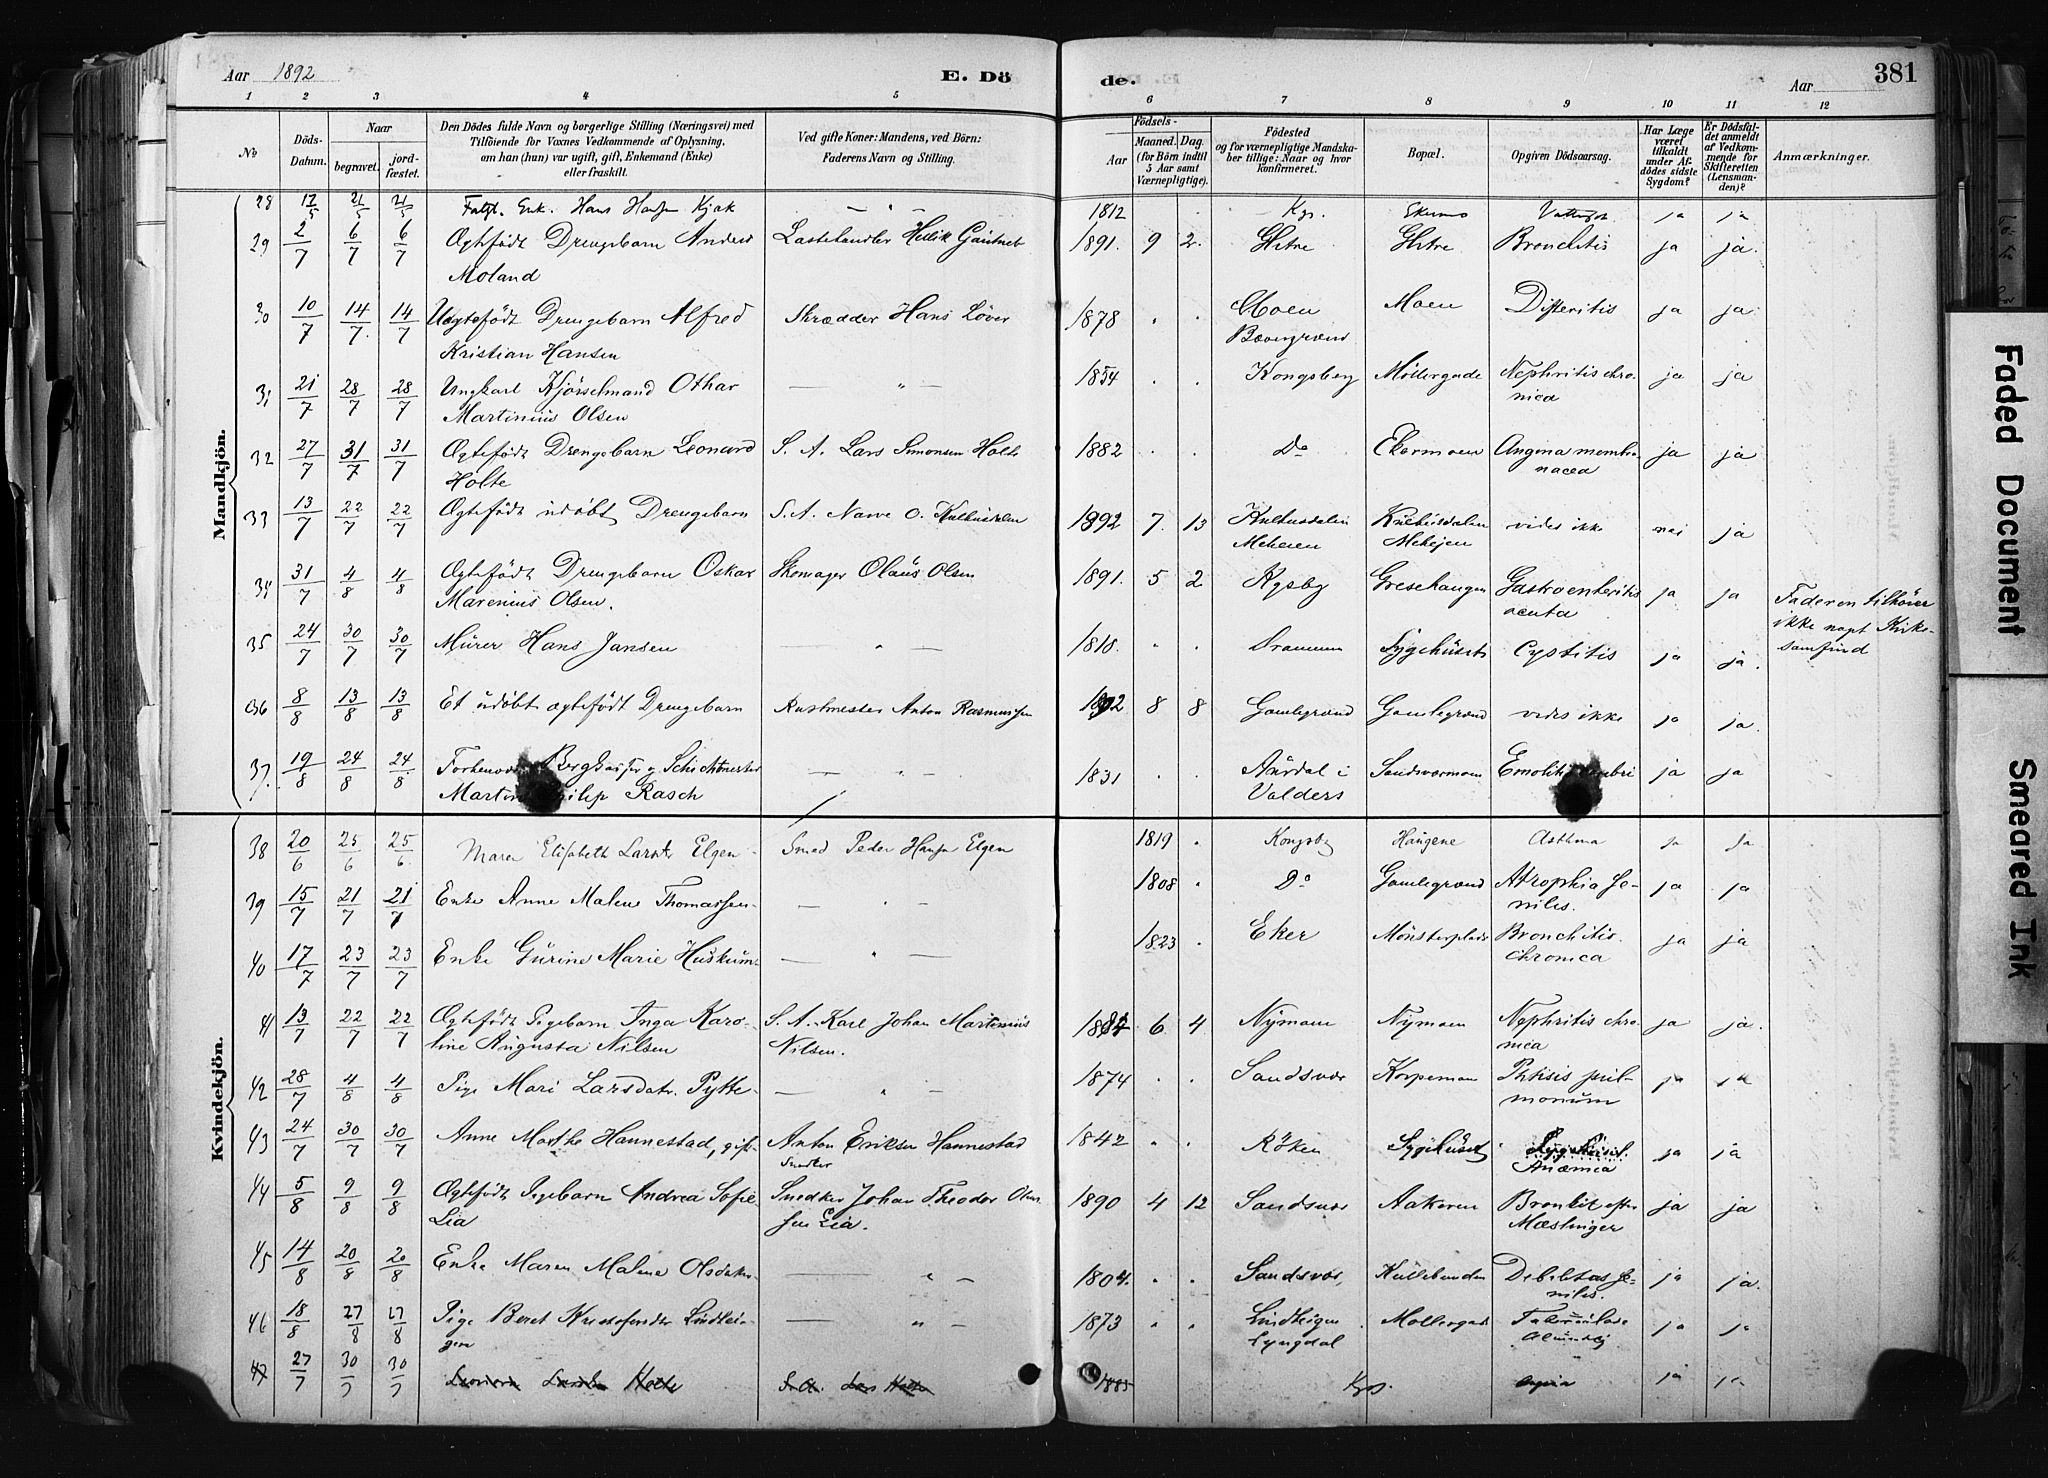 Aar 1892 E. Dö de. Aar 381
1 2 3 4 5 6 7 8 9 10 11 12
No
Döds-Datum.
Naar
begravet.
jord-fæstet.
Den Dödes fulde Navn og borgerlige Stilling (Næringsvei) med
Tilföiende for Voxnes Vedkommende af Oplysning,
om han (hun) var ugift, gift, Enkemand (Enke)
eller fraskilt.
Ved gifte Koner: Mandens, ved Börn:
Faderens Navn og Stilling.
Födsels-
Aar
Maaned. Dag.
(for Börn indtil
5 Aar samt
Værnepligtige).
Födested
og for værnepligtige Mandska-
ber tillige: Naar og hvor
konfirmeret.
Bopæl.
Opgiven Dödsaarsag.
Har Læge
været
tilkaldt
under Af-
dödes sidste
Sygdom?
Er Dödsfal-
det anmeldt
af Vedkom-
mende for
Skifteretten
(Lensman-
den)?
Anmærkninger.
Mandkjön.
28 17/5 21/5 21/5 Enk. Hans Kjak 1812 Kgs. ja ja
29 2/7 6/7 6/7 Ægtefödt Drengebarn 1891. 9 2. Bronchitis ja ja.
Moland
30 10/7 14/7 14/7 Uægtefödt Drengebarn Alfred Skrædder Hans Löver 1878 Moen Moen Difteritis ja ja
Kristian Hansen
31 21/7 28/7 28/7 Ungkarl Kjörselmand Othar 1854 Kongsberg Möllergade Nephritis chro- ja ja
Martinius Olsen nica
32 27/7 31/7 31/7 Ægtefödt Drengebarn Leonard S. A. Lars Simonsen Holte 1882 Do Ekermoen Angina membra- ja ja
Holte nacea
33 13/7 22/7 22/7 Ægtefödt udöbt Drengebarn S. A. Narve O. 1892 7. 13 vides ikke nei ja
34 31/7 4/8 4/8 Ægtefödt Drengebarn Oskar Skomager Olaus Olsen 1891. 5 2 Kgsbg Gresehaugen Gastroenteritis ja ja Faderen tilhörer
Marenius Olsen. acuta ikke noget Kirke-
35 24/7 30/7 30/7 Murer Hans Jansen 1818. Drammen Sygehuset Cystitis ja ja. samfund
36 8/8 13/8 13/8 Et udöbt ægtefödt Drengebarn Rustmester Anton Rasmussen 1892 8 8 Gamlegrænd Gamlegrænd vides ikke ja ja.
37. 19/8 24/8 24/8 1831 Aardal i ja ja
Rasch Valders
Kvindekjön.
38 20/6 25/6 25/6 Maren Elisabeth Larsdtr Elgen Smed Peder Hansen Elgen 1819 Kongsbg Haugene Asthma ja ja
39 15/7 21/7 21/7 Enke Anne Malene Thomassen 1808 Do Gamlegrænd Atrophia se- ja ja
niles.
40 17/7 23/7 23/7 Enke Gurine Marie 1823 Eker Bronchitis ja ja
chronica
41 13/7 22/7 22/7 Ægtefödt Pigebarn Inga Karo- S. A. Karl Johan Martinius 6. 4 Nymoen Nymoen Nephritis chro- ja ja.
line Augusta Nilsen Nilsen. nica
42 28/7 4/8 4/8 Pige Mari Larsdatr. Pytte 1874 Sandsvær Phtisis pul- ja ja
monum
43 24/7 30/7 30/7 Anne Marthe Hannestad, gift Anton Eriksen Hannestad 1842 Röken Sygehuset Sygehuset. ja ja
Snedker Anæmia
44 5/8 9/8 9/8 Ægtefödt Pigebarn Andrea Sofie Snedker Johan Theodor Olaus- 1890 4 12 Sandsvær Aakeren Bronkit efter ja ja
Lia sen Lia. Mæslinger
45 14/8 20/8 20/8 Enke Maren Malene Olsdatter 1804. Sandsvær, Debilitas se- ja ja.
niles.
46 18/8 27/8 27/8 Pige Beret 1873 ja ja
Lyngdal
47 27/7 30/7 30/7 Holte S. A. Lars Holte 1885 Kgs. Angina ja ja
Faded Document
Smeared Ink